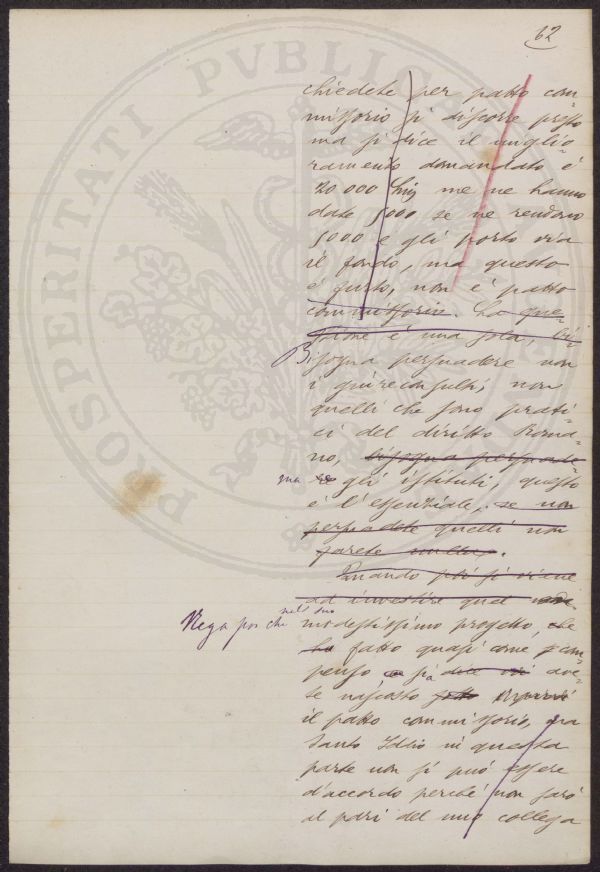 62
chiedete per patto com-
missorio si discorre presso
ma si dice il miglio-
ramento domandato è
20 000 lire me ne hanno
dato 5000 se ne rendono
5000 e gli porto via
il fondo, ma questo
è giusto, non è patto
commissorio. La que-
stione è una sola, bi-
Bisogna persuadere non
i giureconsulti, non
quelli che sono prati-
ci del diritto Roma-
no, bisogna persuade-
ma re gli istituti, questo
è l'essenziale, se non
persuadete quelli non
farete nulla.
Quando poi si viene
ad investire quel
Nega poi che nel suo modestissimo progetto, che
ha fatto quasi come com-
penso si dice vi ave-
te nascosto sotto
il patto commissorio, ma
Santo Iddio in questa
parte non si può essere
d'accordo perché non sarò
al pari del mio collega
PROSPERITATI PVBLICAE